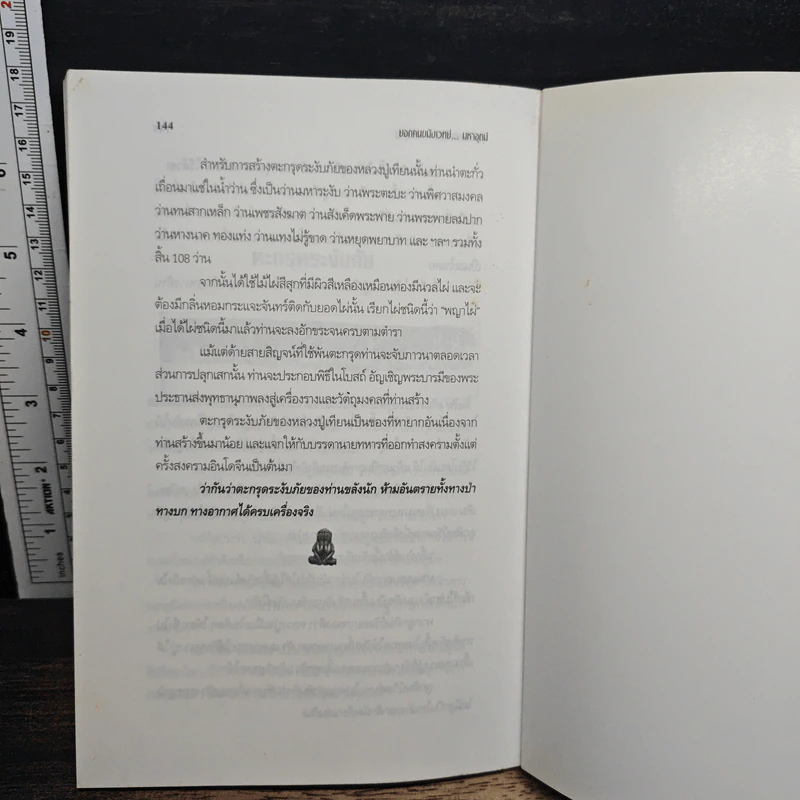 144
ยอดคนขมังเวทย์... มหาอุตม์
สำหรับการสร้างตะกรุดระงับภัยของหลวงปู่เทียนนั้น ท่านนำตะกั่ว
เถื่อนมาแช่ในน้ำว่าน ซึ่งเป็นว่านมหาระงับ ว่านพระตะบะ ว่านพิศวาสมงคล
ว่านทนสากเหล็ก ว่านเพชรสังฆาต ว่านสังเค็ดพระพาย ว่านพระพายลมปาก
ว่านหางนาค ทองแท่ง ว่านแทงไม่รู้ขาด ว่านหยุดพยาบาท และ ฯลฯ รวมทั้ง
สิ้น 108 ว่าน
จากนั้นได้ใช้ไม้ไผ่สีสุกที่มีผิวสีเหลืองเหมือนทองมีนวลไผ่ และจะ
ต้องมีกลิ่นหอมกระแจะจันทร์ติดกับยอดไผ่นั้น เรียกไผ่ชนิดนี้ว่า "พญาไผ่"
เมื่อได้ไผ่ชนิดนี้มาแล้วท่านจะลงอักขระจนครบตามตำรา
แม้แต่ด้ายสายสิญจน์ที่ใช้พันตะกรุดท่านจะจับภาวนาตลอดเวลา
ส่วนการปลุกเสกนั้น ท่านจะประกอบพิธีในโบสถ์ อัญเชิญพระบารมีของพระ
ประธานส่งพุทธานุภาพลงสู่เครื่องรางและวัตถุมงคลที่ท่านสร้าง
ตะกรุดระงับภัยของหลวงปู่เทียนเป็นของที่หายากอันเนื่องจาก
ท่านสร้างขึ้นมาน้อย และแจกให้กับบรรดานายทหารที่ออกทำสงครามตั้งแต่
ครั้งสงครามอินโดจีนเป็นต้นมา
ว่ากันว่าตะกรุดระงับภัยของท่านขลังนัก ห้ามอันตรายทั้งทางป่า
ทางบก ทางอากาศได้ครบเครื่องจริง